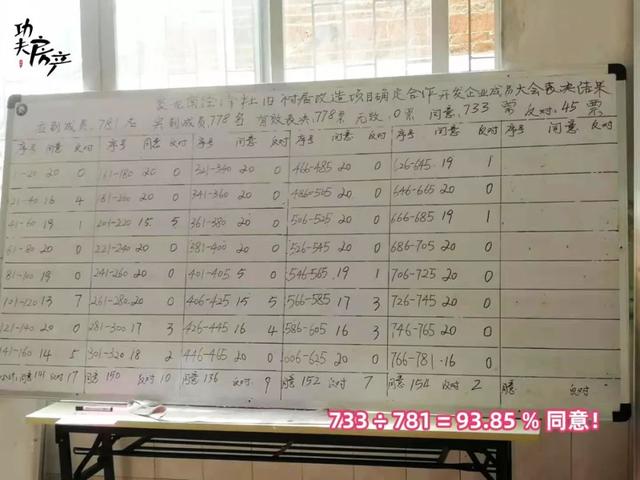 功夫房产
社旧村居改造项目确定合作开发企业成员大会表决结果
应到成员,781名 实到成员,778名 有效表决,778票 无效,0票 同意,733票 反对,45票
序号 同意 反对 序号 同意 反对 序号 同意 反对 序号 同意 反对 序号 同意 反对 序号 同意 反对
1-20 20 0 161-180 20 0 321-340 20 0 466-485 20 0 626-645 19 1
21-40 16 4 181-200 20 0 341-360 20 0 486-505 20 0 646-665 20 0
41-60 19 1 201-220 15 5 361-380 20 0 506-525 20 0 666-685 19 1
61-80 20 0 221-240 20 0 381-400 20 0 526-545 20 0 686-705 20 0
81-100 19 0 241-260 20 0 401-405 5 0 546-565 19 1 706-725 20 0
101-120 13 7 261-280 20 0 406-425 15 5 566-585 17 3 726-745 20 0
121-140 20 0 281-300 17 3 426-445 16 4 586-605 16 3 746-765 20 0
141-160 14 5 301-320 18 2 446-465 20 0 606-625 20 0 766-781 16 0
同意 141 反对 17 同意 150 反对 10 同意 136 反对 9 同意 152 反对 7 同意 154 反对 2 同意 反对
733÷781=93.85% 同意!